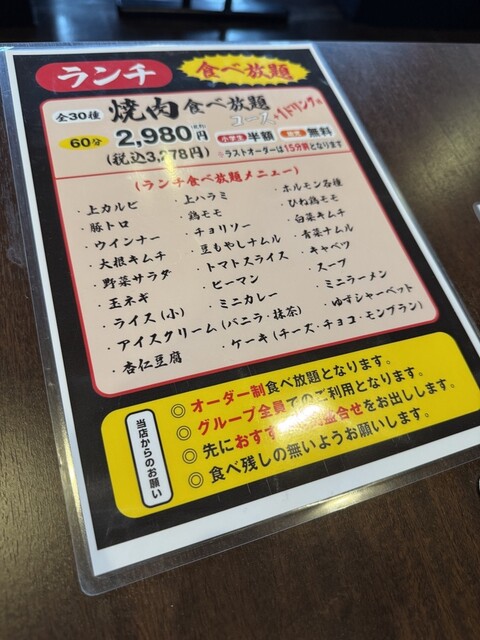 ランチ
食べ放題
全30種
焼肉食べ放題
コース+1ドリンク
60分
2,980円
(税込3,278円)
小学生 半額
無料
※ラストオーダーは15分前となります
(ランチ食べ放題メニュー)
・上カルビ
・豚トロ
・ウインナー
・大根キムチ
・野菜サラダ
・玉ネギ
・ライス(小)
・アイスクリーム(バニラ・抹茶)
・杏仁豆腐
・上ハラミ
・鶏モモ
・チョリソー
・豆もやしナムル
・トマトスライス
・ピーマン
・ミニカレー
・ケーキ(チーズ・チョコ・モンブラン)
・ホルモン各種
・ひね鶏モモ
・白菜キムチ
・青菜ナムル
・キャベツ
・スープ
・ミニラーメン
・ゆずシャーベット
当店からのお願い
◎オーダー制食べ放題となります。
◎グループ全員でのご利用となります。
◎先におすすめ盛合せをお出しします。
◎食べ残しの無いようお願いします。